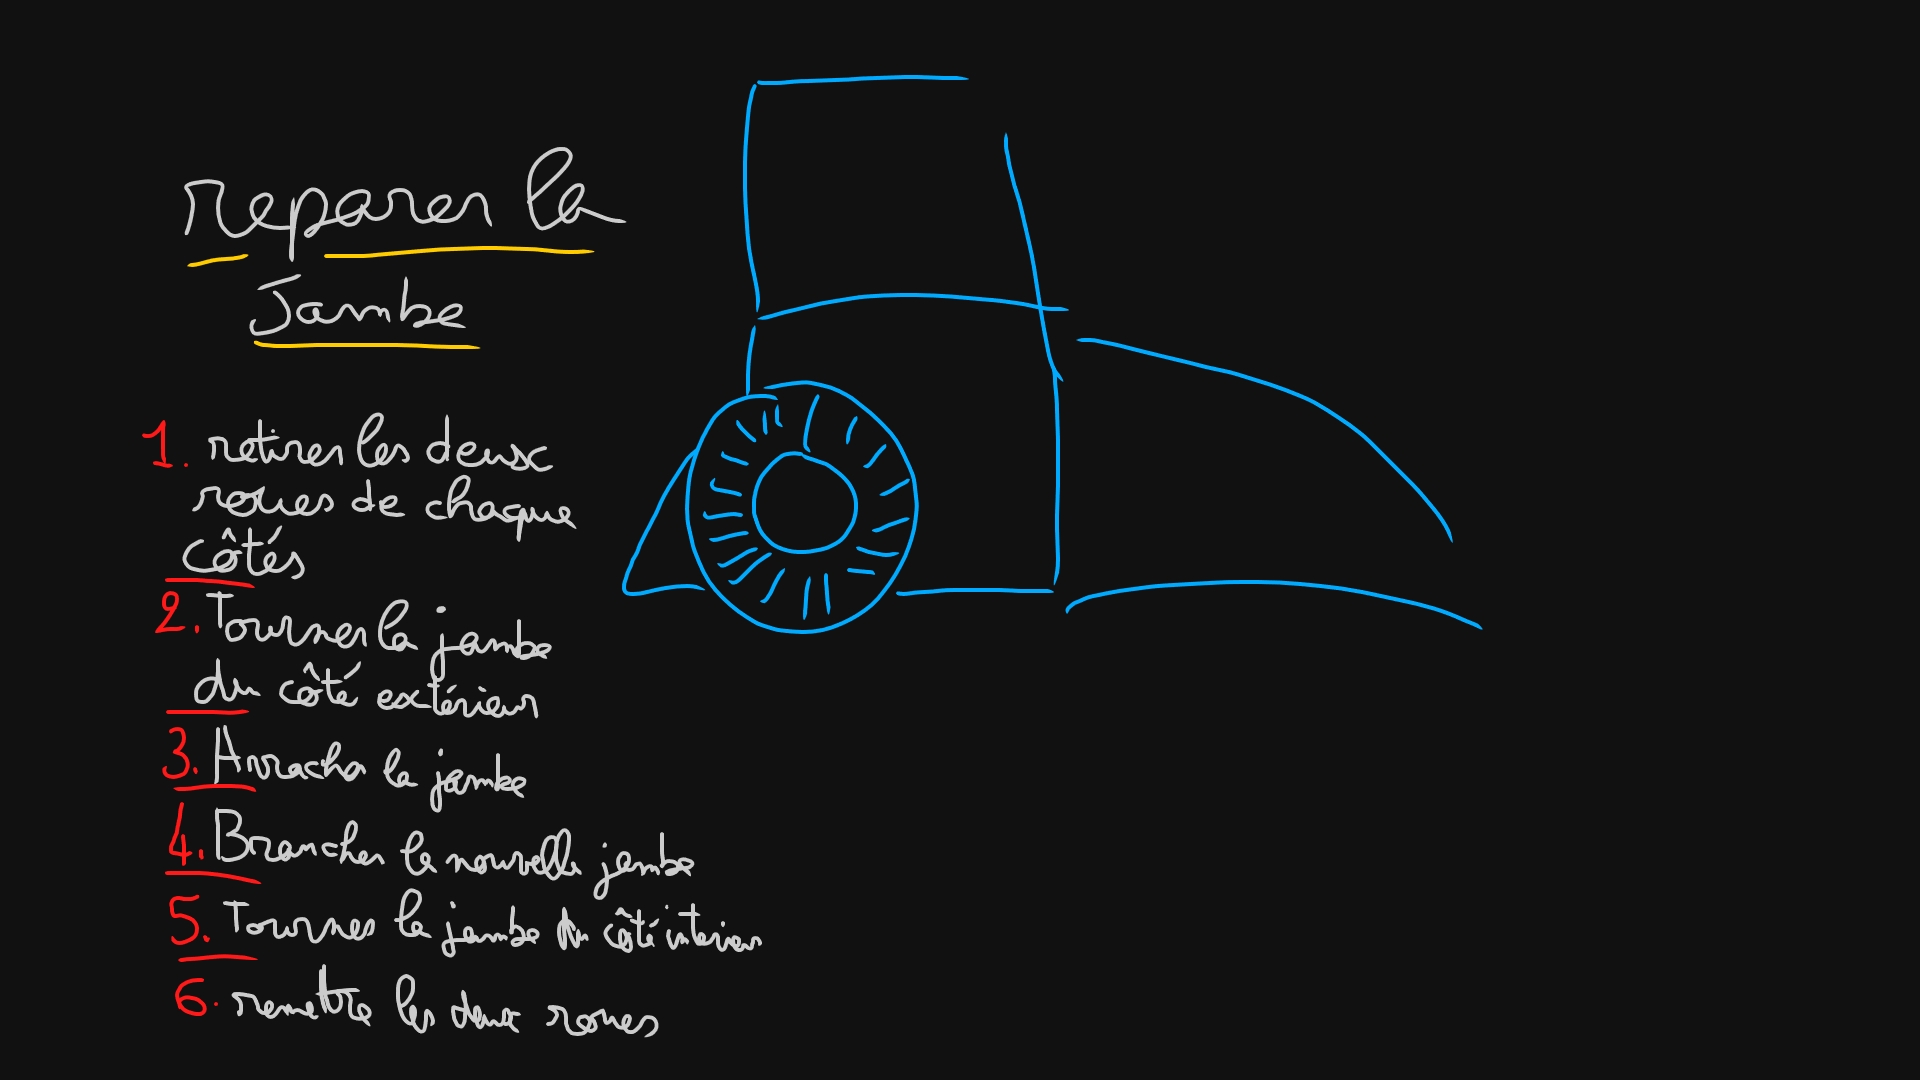 reparer la
Jambe
1. retirer les deux
roues de chaque
côtés
2. Tourner la jambe
du côté extérieur
3. Arracher la jambe
4. Brancher la nouvelle jambe
5. Tourner la jambe du côté interieur
6. remettre les deux roues